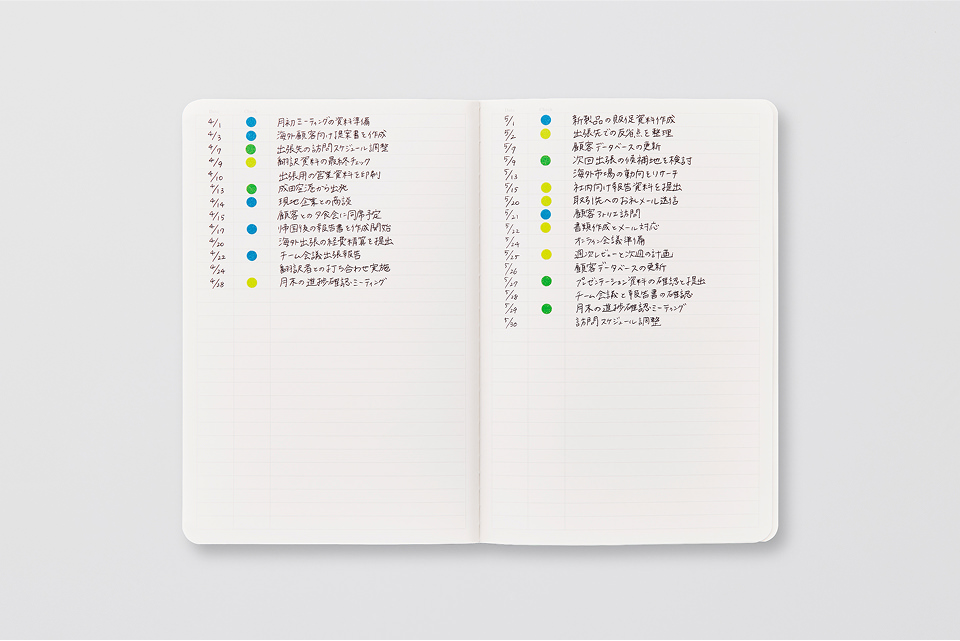 4/1 月初ミーティングの資料準備
4/3 海外顧客向け提案書を作成
4/7 出張先の訪問スケジュール調整
4/9 翻訳資料の最終チェック
4/10 出張用の営業資料を印刷
4/13 成田空港から出発
4/14 現地企業との商談
4/15 顧客との夕食会に同席予定
4/17 帰国後の報告書を作成開始
4/20 海外出張の経費精算を提出
4/22 チーム会議出張報告
4/24 翻訳者との打ち合わせ実施
4/28 月末の進捗確認ミーティング
5/1 新製品の販促資料作成
5/2 出張先での反省点を整理
5/7 顧客データベースの更新
5/9 次回出張の候補地を検討
5/13 海外市場の動向をリサーチ
5/15 社内向け報告資料を提出
5/20 取引先へのお礼メール送信
5/21 顧客アトリエ訪問
5/22 書類作成とメール対応
5/24 オンライン会議準備
5/25 週次レビューと次週の計画
5/26 顧客データベースの更新
5/27 プレゼンテーション資料の確認と提出
5/28 チーム会議と報告書の確認
5/29 月末の進捗確認ミーティング
5/30 訪問スケジュール調整